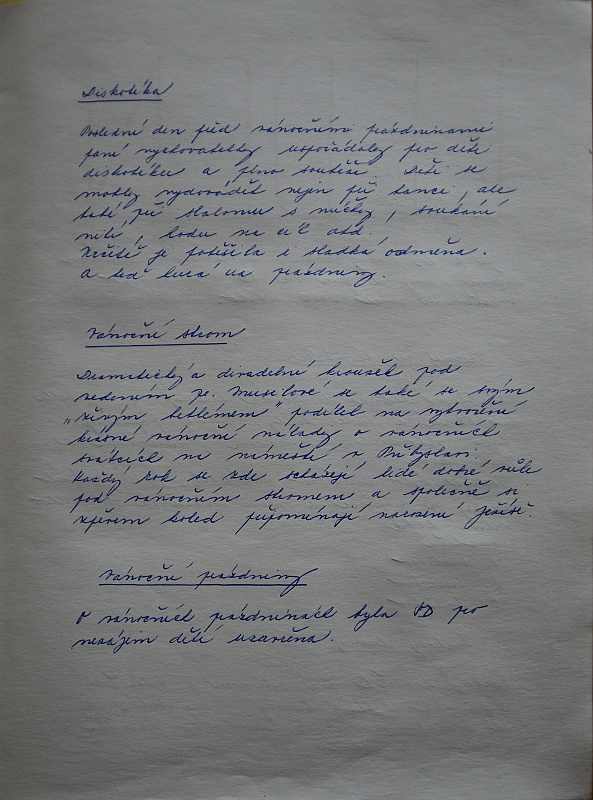 Diskotéka
Poslední den před vánočními prázdninami
paní vychovatelky uspořádaly pro děti
diskotéku a plno soutěží. Děti se
mohly vydovádět nejen při tanci, ale
také při slalomu s míčky, soukání
niti, hodu na cíl atd.
Určitě je potěšila i sladká odměna.
A teď hurá na prázdniny.
Vánoční strom
Dramatický a divadelní kroužek pod
vedením pí. Musilové se také se svým
„živým betlémem" podílel na vytvoření
krásné vánoční nálady o vánočních
svátcích na náměstí v Přibyslavi.
Každý rok se zde scházejí lidé dobré vůle
pod vánočním stromem a společně si
zpěvem koled připomínají narození Ježíše.
Vánoční prázdniny
O vánočních prázdninách byla ŠD pro
nezájem dětí uzavřena.